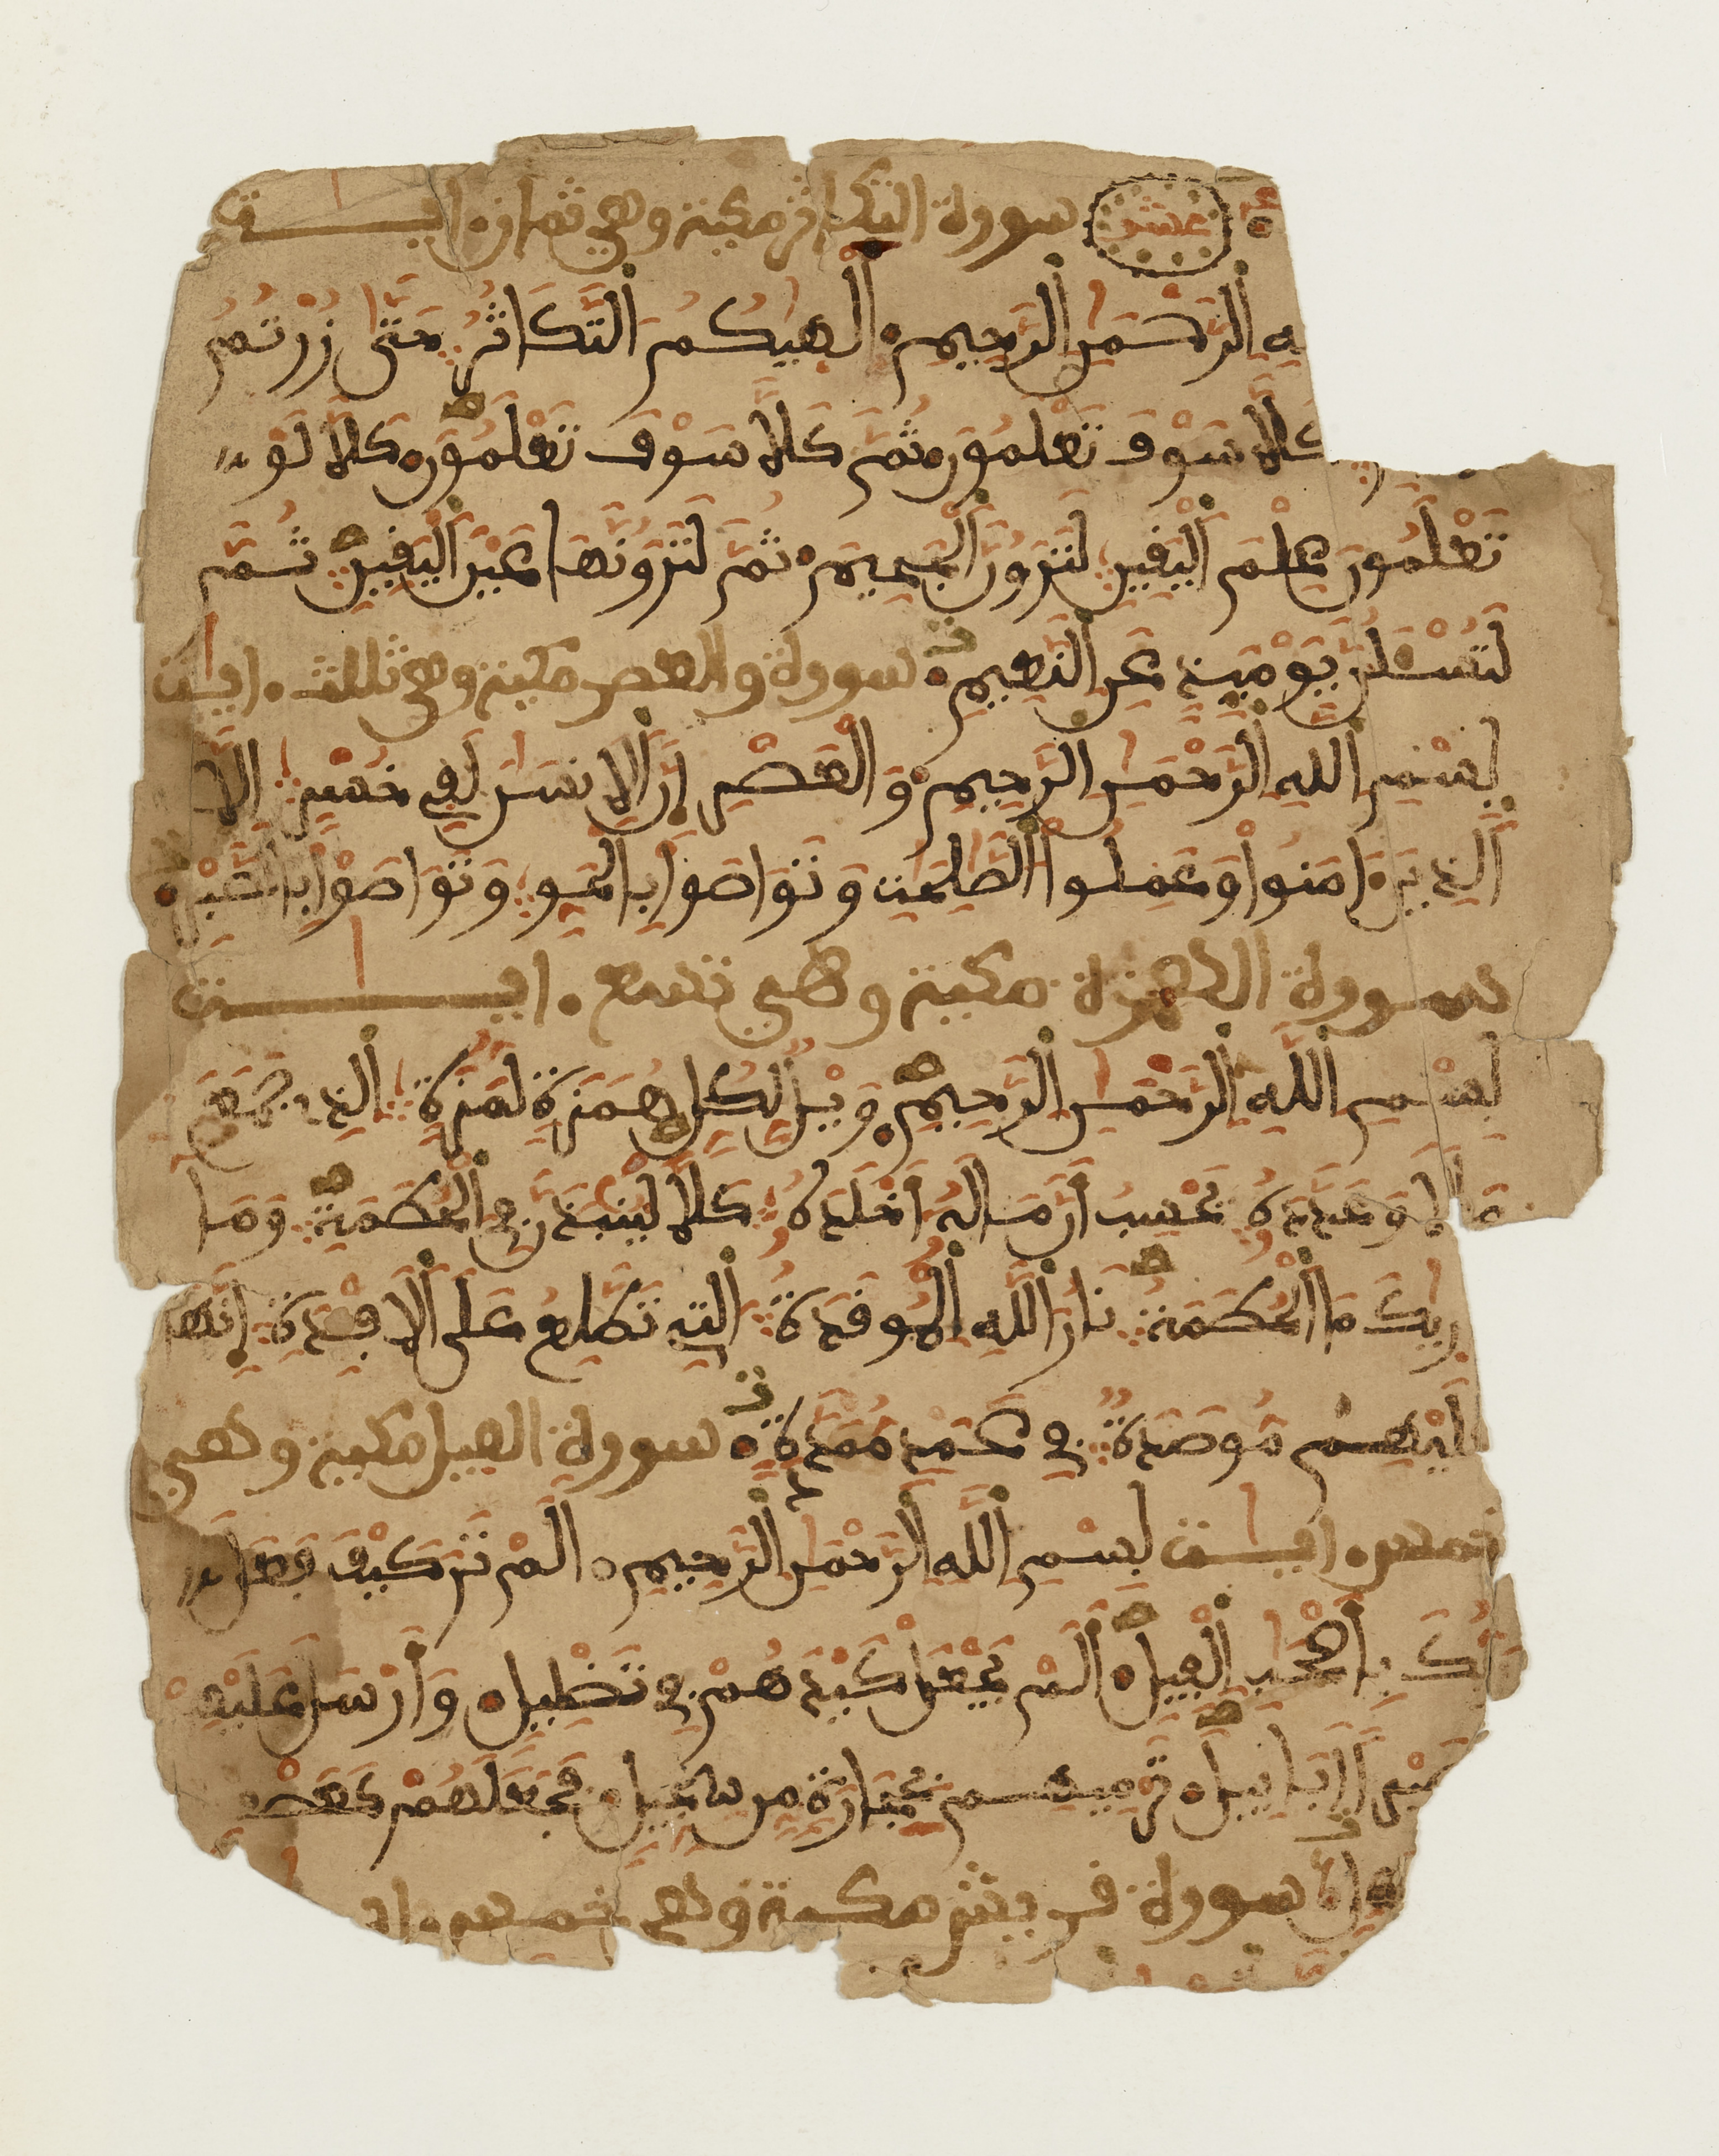 عشر سورة التكاثر مكية وهي ثمان ايت
ـه الرحمن الرحيم الهيكم التكاثر حتى زرتم
كلا سوف تعلمون ثم كلا سوف تعلمون كلا لو
تعلمون علم اليقين لترون الجحيم ثم لترونها عين اليقين ثم
لتسئلن يوميذ عن النعيم سورة والعصر مكية وهي ثلث ايت
بسم الله الرحمن الرحيم والعصر ان الانسن لفي خسر الا
الذين امنوا وعملوا الصلحت وتواصوا بالحق وتواصوا بالصبر
سورة الهمزة مكية وهي تسع ايت
بسم الله الرحمن الرحيم ويل لكل همزة لمزة الذي جمع
مالا وعدده يحسب ان ماله اخلده كلا لينبذن في الحطمة وما
ريك ما الحطمة نار الله الموقدة التي تطلع على الافدة انها
ليهم موصدة في عمد ممددة سورة الفيل مكية وهي
خمس ايت بسم الله الرحمن الرحيم الم تر كيف فعل
بك باصحب الفيل الم يجعل كيدهم في تضليل وارسل عليهم
طيرا ابابيل ترميهم بحجارة من سجيل فجعلهم كعصف
كول سورة قريش مكية وهي خمس ايـ